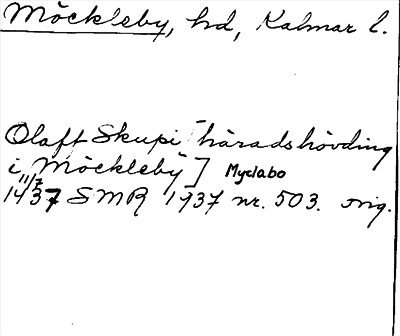 Möckleby, hd, Kalmar l.
Olaff Skupi [häradshövding
i Möckleby] Myclabo
11/7
1437 SMR 1937 nr. 503. orig.